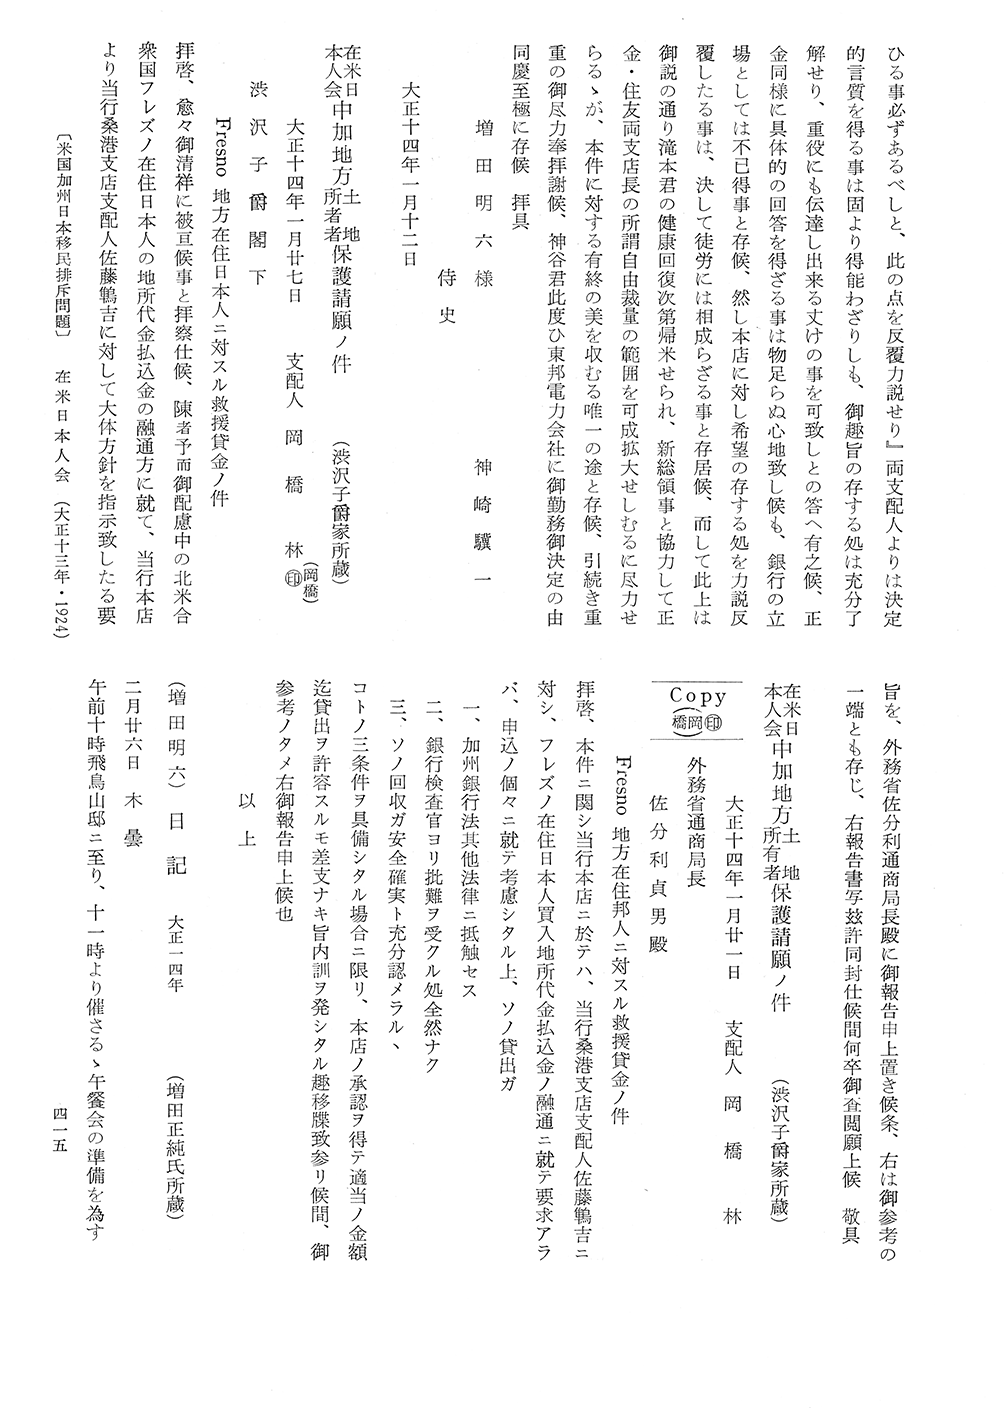 ひる事必ずあるべしと、此の点を反覆力説せり』両支配人よりは決定
的言質を得る事は固より得能わざりしも、御趣旨の存する処は充分了
解せり、重役にも伝達し出来る丈けの事を可致しとの答へ有之候、正
金同様に具体的の回答を得ざる事は物足らぬ心地致し候も、銀行の立
場としては不已得事と存候、然し本店に対し希望の存する処を力説反
覆したる事は、決して徒労には相成らざる事と存居候、而して此上は
御説の通り滝本君の健康回復次第帰米せられ、新総領事と協力して正
金・住友両支店長の所謂自由裁量の範囲を可成拡大せしむるに尽力せ
らるゝが、本件に対する有終の美を収むる唯一の途と存候、引続き重
重の御尽力奉拝謝候、神谷君此度ひ東邦電力会社に御勤務御決定の由
同慶至極に存候　拝具
増田明六様　神崎驥一
侍史
大正十四年一月十二日
在米日本人会中加地方土地所者者保護請願ノ件　（渋沢子爵家所蔵）
大正十四年一月廿七日　支配人　岡橋　林㊞（岡橋）
渋沢子爵閣下
Fresno 地方在住日本人ニ対スル救援貸金ノ件
拝啓、愈々御清祥に被亘候事と拝察仕候、陳者予而御配慮中の北米合
衆国フレズノ在住日本人の地所代金払込金の融通方に就て、当行本店
より当行桑港支店支配人佐藤鶉吉に対して大体方針を指示致したる要
〔米国加州日本移民排斥問題〕　在米日本人会　（大正十三年・1924）
旨を、外務省佐分利通商局長殿に御報告申上置き候条、右は御参考の
一端とも存じ、右報告書写玆許同封仕候間何卒御査閲願上候　敬具
在米日本人会中加地方土地所有者保護請願ノ件　（渋沢子爵家所蔵）
大正十四年一月廿一日　支配人　岡橋　林
Copy
㊞（岡橋）
外務省通商局長
佐分利貞男殿
Fresno 地方在住邦人ニ対スル救援貸金ノ件
拝啓、本件ニ関シ当行本店ニ於テハ、当行桑港支店支配人佐藤鶉吉ニ
対シ、フレズノ在住日本人買入地所代金払込金ノ融通ニ就テ要求アラ
バ、申込ノ個々ニ就テ考慮シタル上、ソノ貸出ガ
一、加州銀行法其他法律ニ抵触セス
二、銀行検査官ヨリ批難ヲ受クル処全然ナク
三、ソノ回収ガ安全確実ト充分認メラルヽ
コトノ三条件ヲ具備シタル場合ニ限リ、本店ノ承認ヲ得テ適当ノ金額
迄貸出ヲ許容スルモ差支ナキ旨内訓ヲ発シタル趣移牒致参リ候間、御
参考ノタメ右御報告申上候也
以上
（増田明六）日記　大正一四年　（増田正純氏所蔵）
二月廿六日　木　曇
午前十時飛鳥山邸ニ至り、十一時より催さるゝ午餐会の準備を為す
四一五